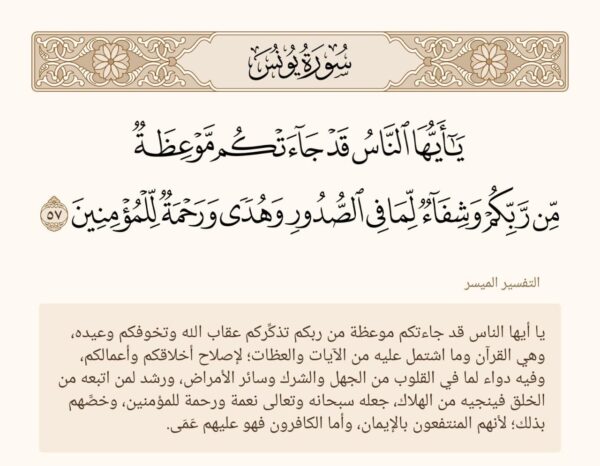 سُورَةُ يُونُسَ
يَٰٓأَيُّهَا ٱلنَّاسُ قَدۡ جَآءَتۡكُم مَّوۡعِظَةٞ
مِّن رَّبِّكُمۡ وَشِفَآءٞ لِّمَا فِي ٱلصُّدُورِ وَهُدٗى وَرَحۡمَةٞ لِّلۡمُؤۡمِنِينَ ٥٧
التفسير الميسر
يا أيها الناس قد جاءتكم موعظة من ربكم تذكِّركم عقاب الله وتخوفكم وعيده،
وهي القرآن وما اشتمل عليه من الآيات والعظات؛ لإصلاح أخلاقكم وأعمالكم،
وفيه دواء لما في القلوب من الجهل والشرك وسائر الأمراض، ورشد لمن اتبعه من
الخلق فينجيه من الهلاك، جعله سبحانه وتعالى نعمة ورحمة للمؤمنين، وخصَّهم
بذلك؛ لأنهم المنتفعون بالإيمان، وأما الكافرون فهو عليهم عَمَى.